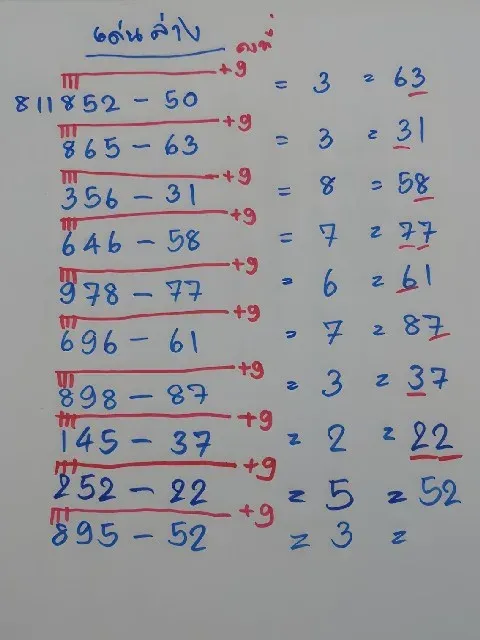 เด่นล่าง
คงที่
+9
811852 - 50 = 3 = 63
+9
865 - 63 = 3 = 31
+9
356 - 31 = 8 = 58
+9
646 - 58 = 7 = 77
+9
978 - 77 = 6 = 61
+9
696 - 61 = 7 = 87
+9
898 - 87 = 3 = 37
+9
145 - 37 = 2 = 22
+9
252 - 22 = 5 = 52
+9
895 - 52 = 3 =